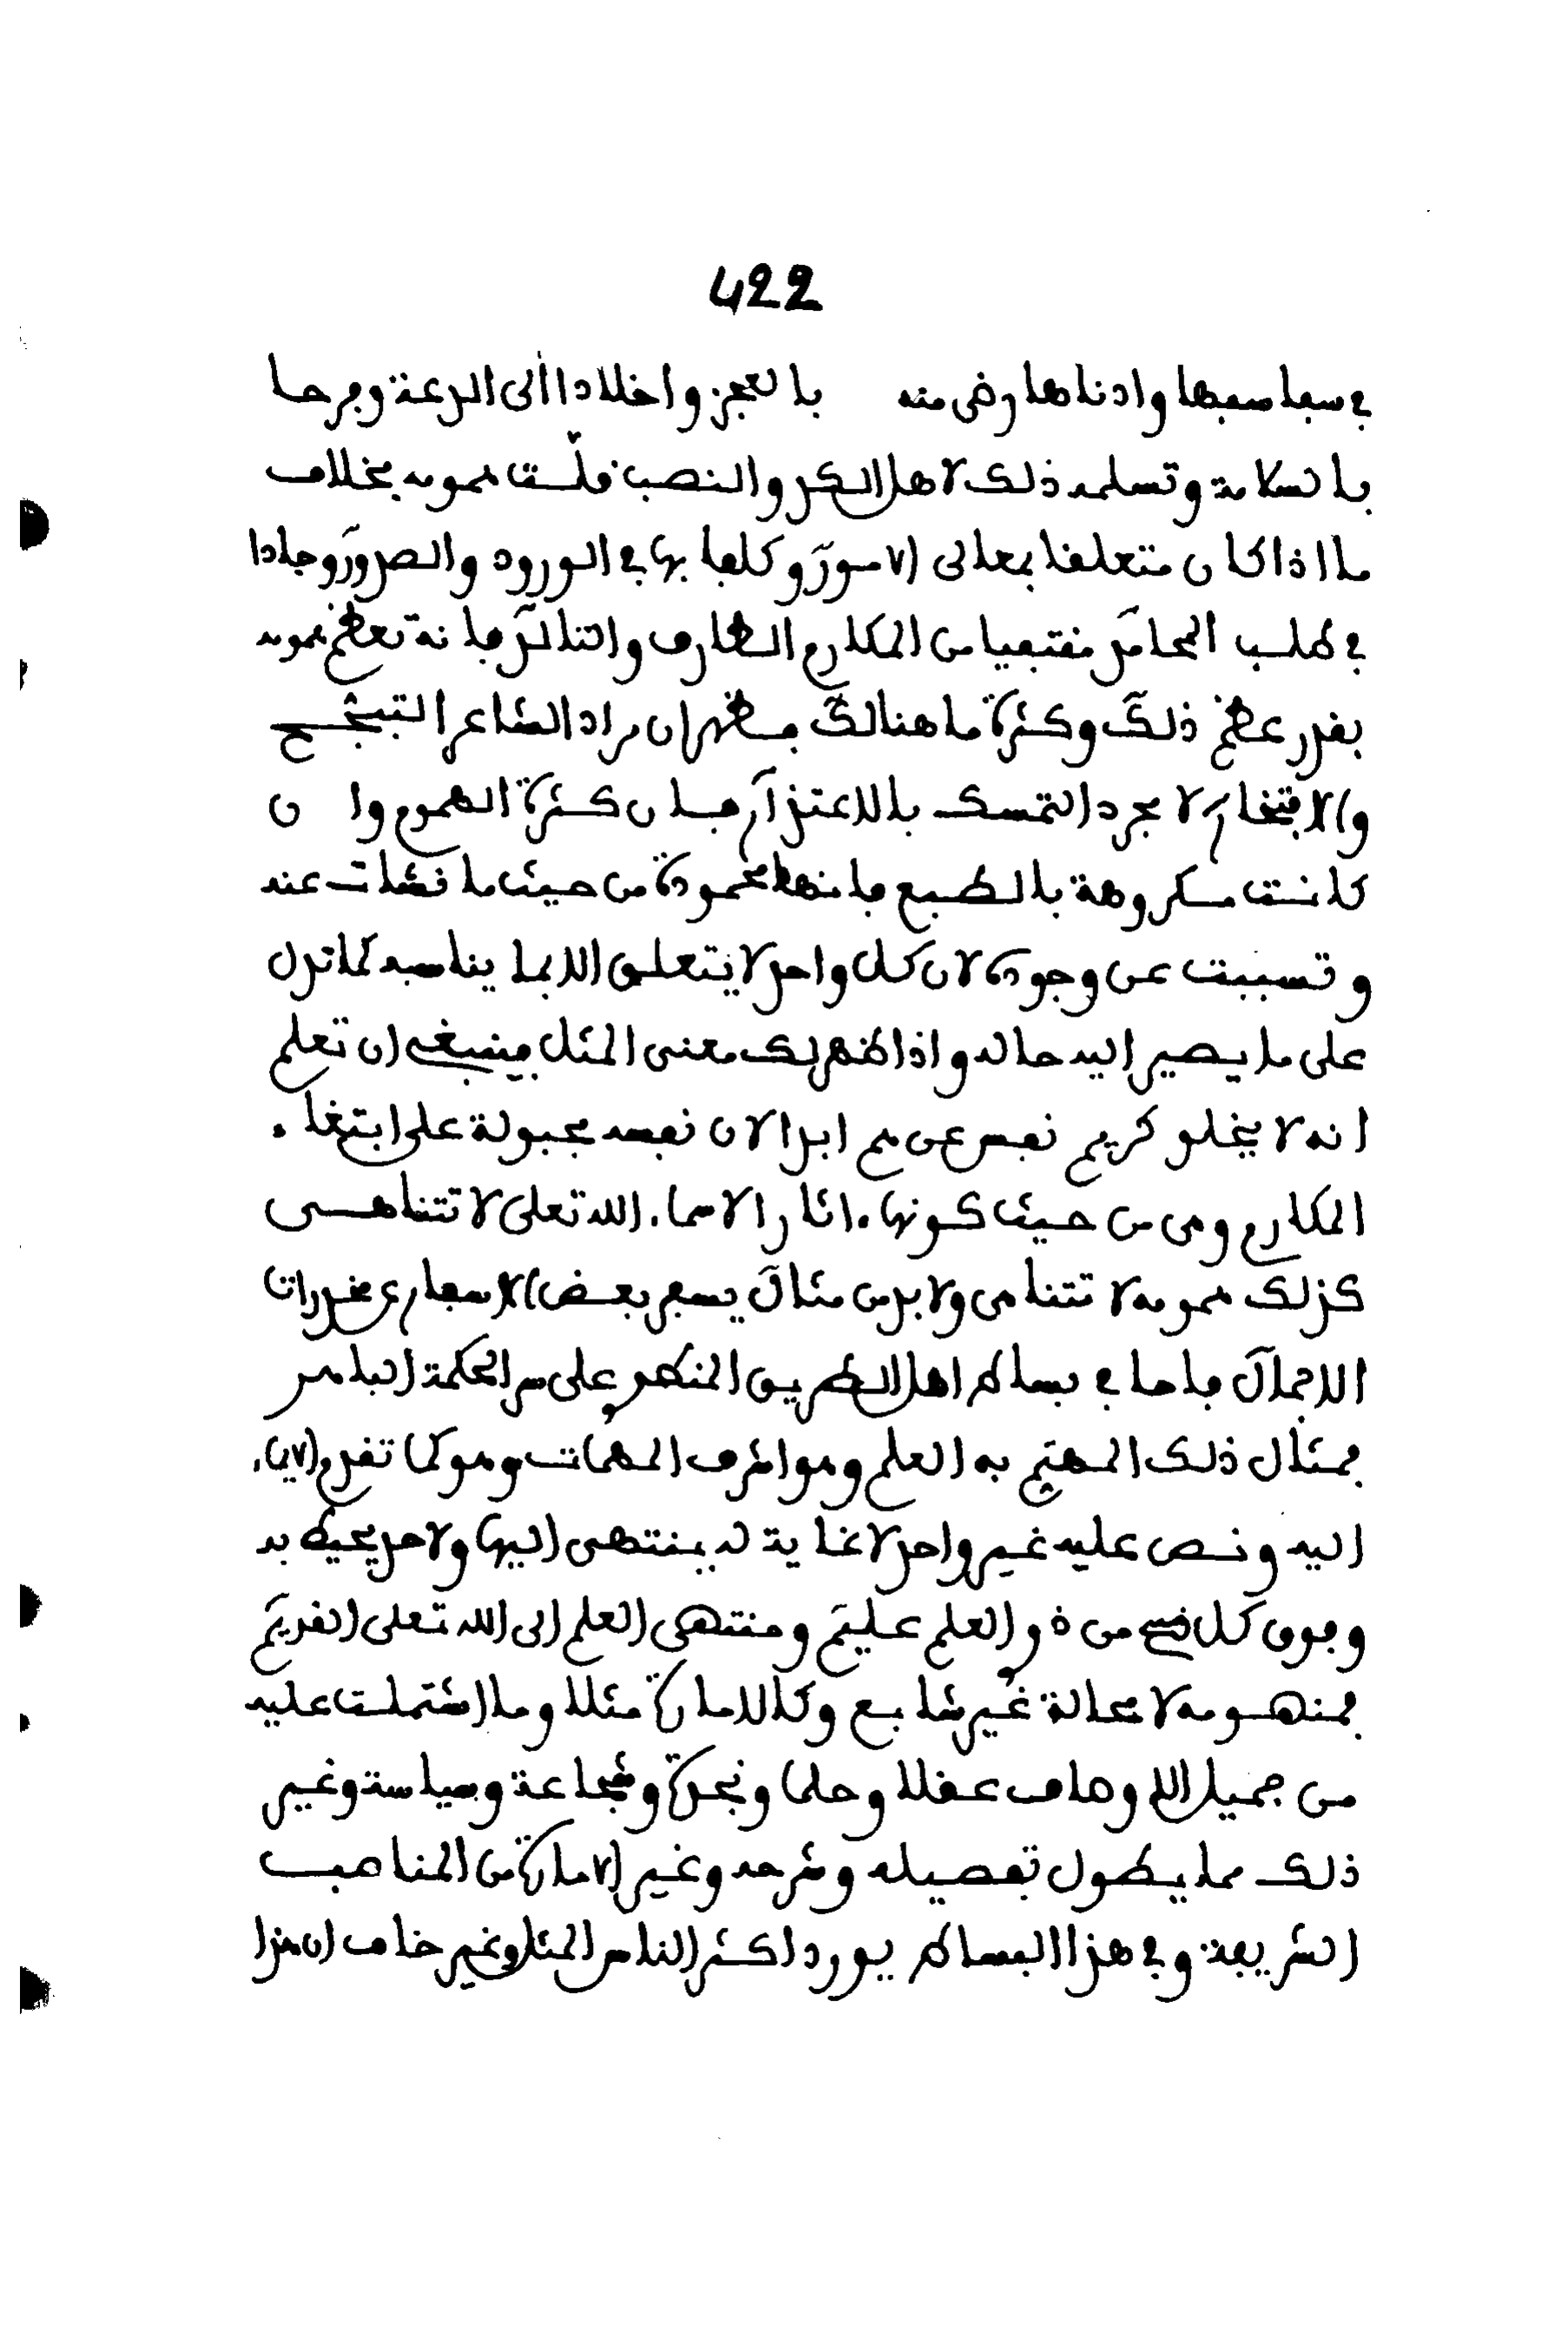 422
في سفاسفها وادناها رضى منه بالعجز واخلادا الى الدعة وفرحا
بالسلامة وتسلمه ذلك لاهل الكد والنصب فلّت همومه بخلاف
ما اذا كان متعلقا بمعالى الامور وكلفا بها في الورود والصدور وجادا
في طلب المحامد مقتفيا من المكارم الطارف والتالد فانه تعظم همومه
بقدر عظم ذلك وكثرة ما هنالك فظهر ان مراد الشاعر التبجح
والافتخار لا مجرد التمسك بالاعتذار فان كثرة الهموم وان
كانت مكروهة بالطبع فانها محمودة من حيث ما نشات عنه
وتسببت عن وجوده لان كل واحد لا يتعلق الا بما يناسبه كما تدل
على ما يصير اليه حاله واذا ظهر لك معنى المثل فينبغي ان تعلم
انه لا يخلو كريم نفس عن هم ابدا لان نفسه مجبولة على ابتغاء
المكارم وهي من حيث كونها ءاثار الاسماء الله تعلى لا تتناهى
كذلك همومه لا تتناهى ولا بد من مثال يسفر بعض الاسفار عن مخدرات
الاجمال فاما في بساط اهل الطريق المنطو على سر الحكمة الباهر
فمثال ذلك المهتم به العلم وهو اشرف المهمات وهو كما تقدم الايماء
اليه ونص عليه غير واحد لا غاية له ينتهى اليها ولا حد يحيط به
وفوق كل من ذو العلم عليم ومنتهى العلم الى الله تعلى القديم
فمنهومه لا محالة غير شابع وكالامارة مثلا وما اشتملت عليه
من جميل الاوصاف عقلا وحلما ونجدة وشجاعة وسياسة وغير
ذلك مما يطول تفصيله وشرحه وغير الامارة من المناصب
الشريفة وفي هذا البساط يورد اكثر الناس المثل وغير خاف ان هذا